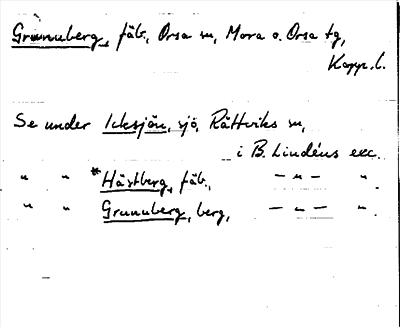 Grunnuberg, fäb, Orsa sn, Mora o. Orsa tg,
Kopp. l.
Se under Icksjön, sjö, Rättviks sn,
i B. Lindéns exc.
" " *Hästberg, fäb., — " — "
" " Grunuberg, berg, — " — "